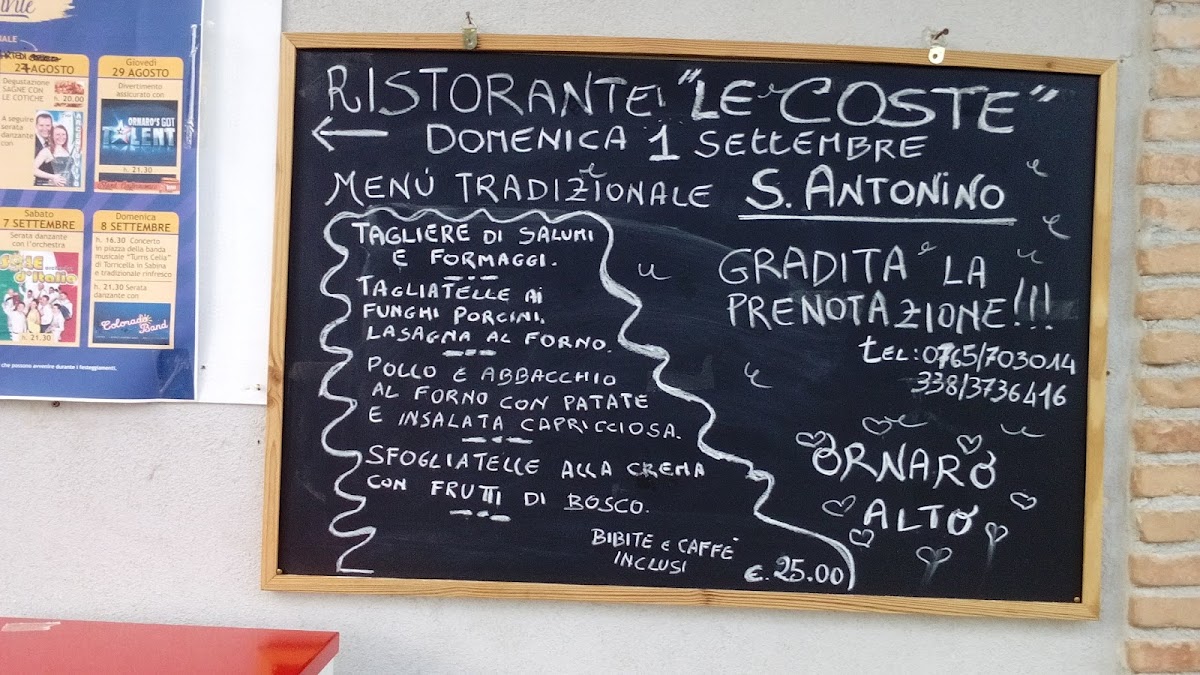 27 AGOSTO
Degustazione
SAGNE CON
LE COTICHE
h. 20.00
A seguire
serata
danzante
con
Giovedì
29 AGOSTO
Divertimento
assicurato con
ORNARO'S GOT
TALENT
h. 21.30
Sabato
7 SETTEMBRE
Serata danzante
con l'orchestra
SOLE
d'Italia
h. 21.30
Domenica
8 SETTEMBRE
h. 16.30 Concerto
in piazza della banda
musicale "Turris Cella"
di Torricella in Sabina
e tradizionale rinfresco
h. 21.30 Serata
danzante con
Colorado
Band
che possono avvenire durante i festeggiamenti.
RISTORANTE! "LE COSTE"
DOMENICA 1 SETTEMBRE
MENÚ TRADIZIONALE S. ANTONINO
TAGLIERE DI SALUMI
E FORMAGGI.
TAGLIATELLE AI
FUNGHI PORCINI.
LASAGNA AL FORNO.
POLLO E ABBACCHIO
AL FORNO CON PATATE
E INSALATA CAPRICCIOSA.
SFOGLIATELLE ALLA CREMA
CON FRUTTI DI BOSCO.
BIBITE E CAFFÈ
INCLUSI
€. 25.00
GRADITA LA
PRENOTAZIONE!!!
tel: 0765/703014
338/3736416
ORNARO
ALTO